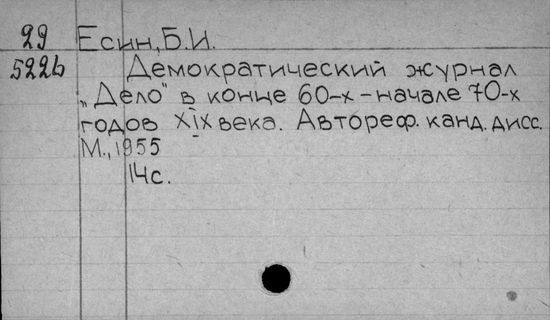 29 Есин, Б.И.
5226 Демократический журнал
„Дело" в конце 60-х - начале 70-х
годов XIX века. Автореф. канд. дисс.
М., 1955
14с.